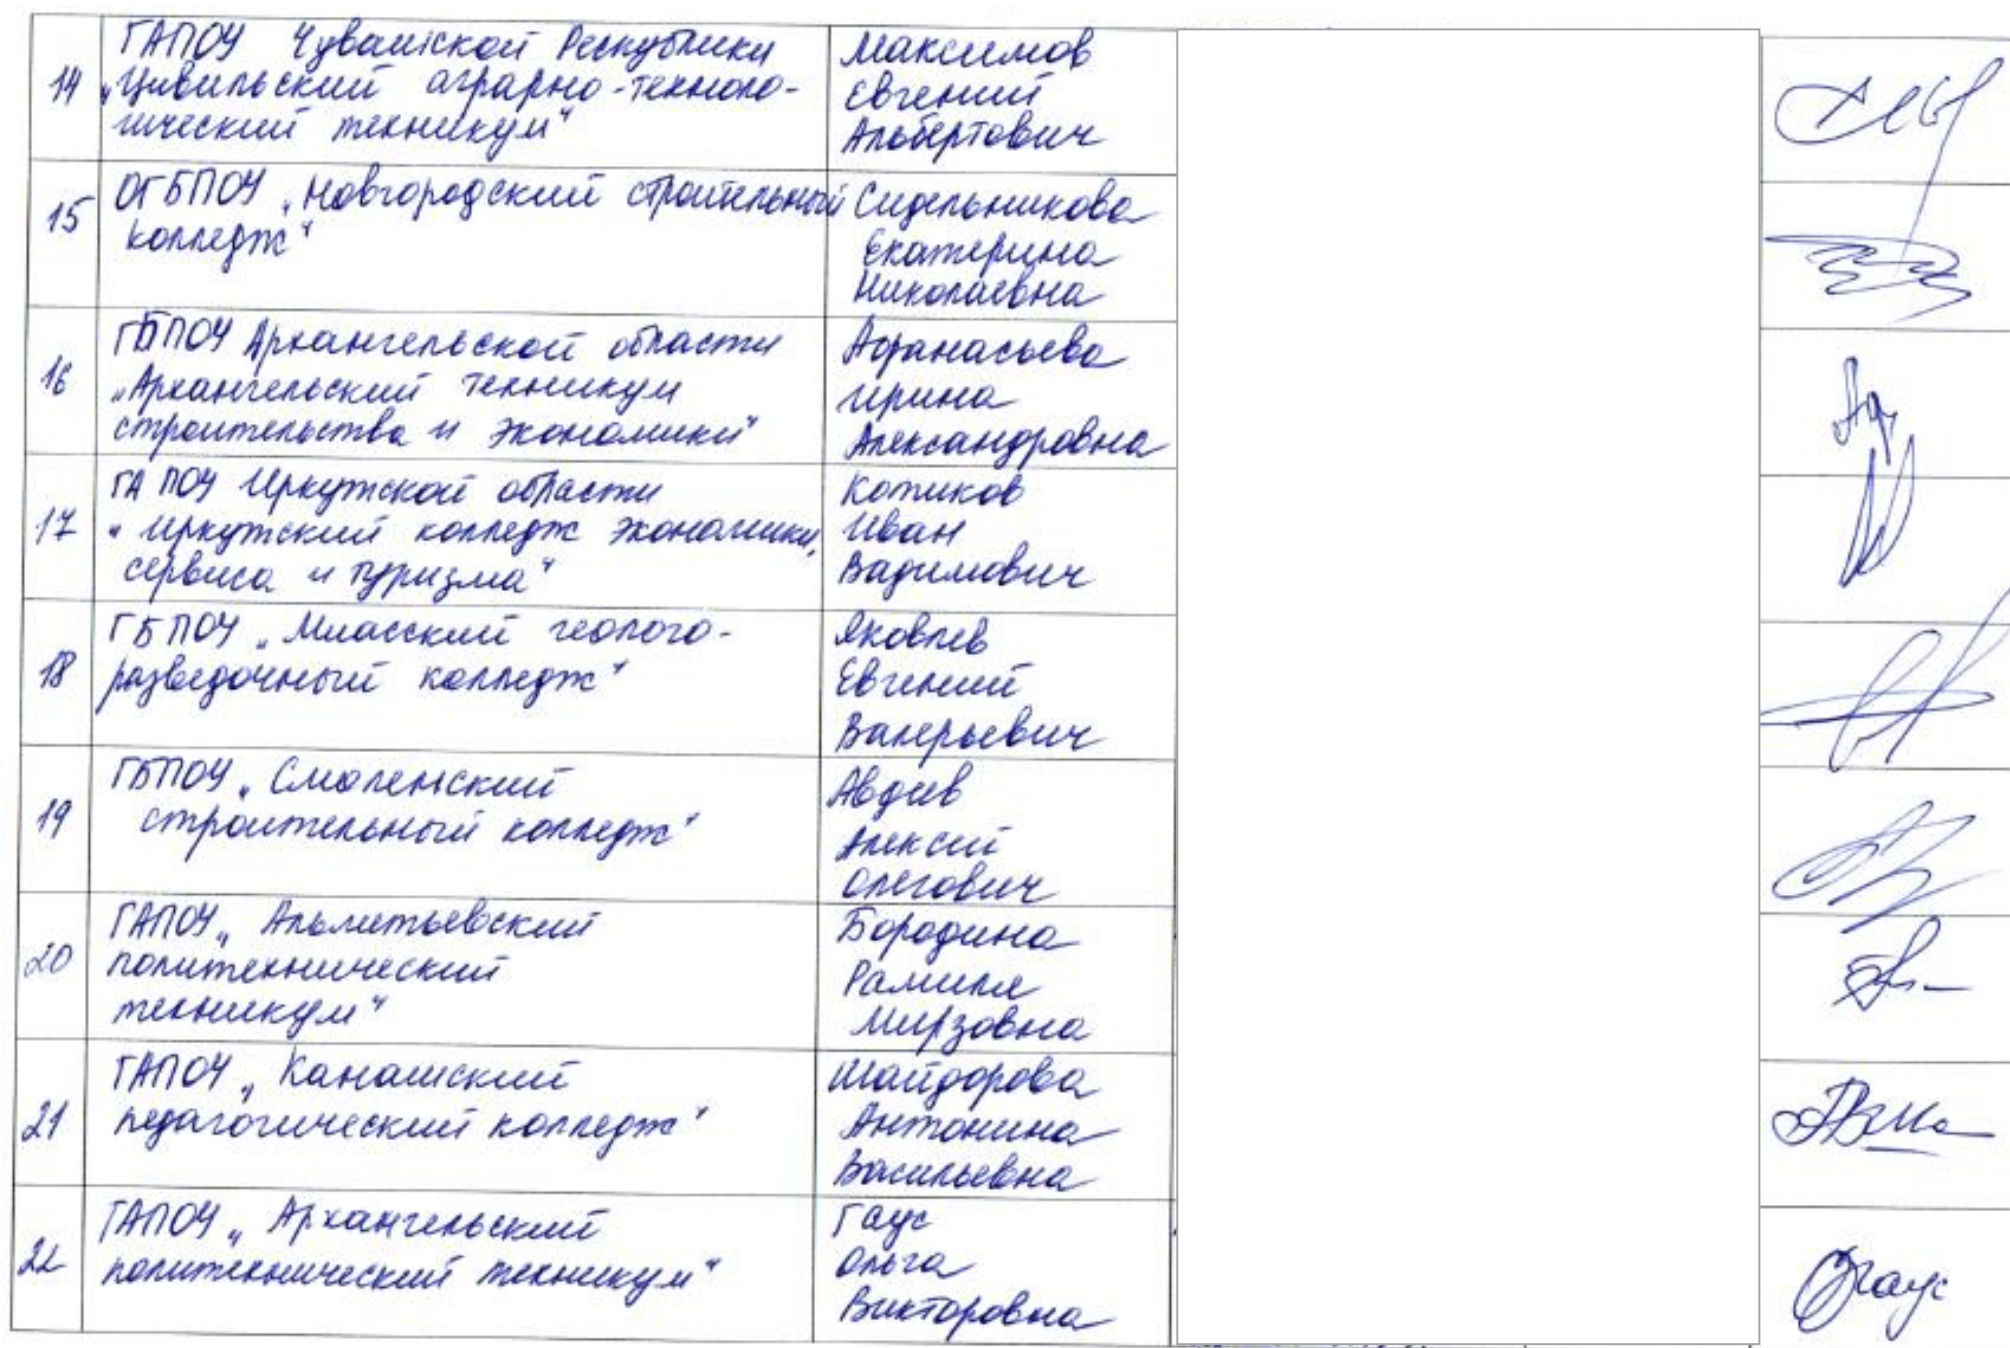 14
ГАПОУ Чувашской Республики
„Цивильский аграрно-техноло-
гический техникум“
Максимов
Евгений
Альбертович
15
ОГБПОУ „Новгородский строительный
колледж“
Сидельникова
Екатерина
Николаевна
16
ГБПОУ Архангельской области
„Архангельский техникум
строительства и экономики“
Афанасьева
Ирина
Александровна
17
ГАПОУ Иркутской области
„Иркутский колледж экономики,
сервиса и туризма“
Котиков
Иван
Вадимович
18
ГБПОУ „Миасский геолого-
разведочный колледж“
Яковлев
Евгений
Валерьевич
19
ГБПОУ „Смоленский
строительный колледж“
Авдеев
Алексей
Олегович
20
ГАПОУ „Альметьевский
политехнический
техникум“
Бородина
Рамиля
Мирзовна
21
ГАПОУ „Канашский
педагогический колледж“
Шайдорова
Антонина
Васильевна
22
ГАПОУ „Архангельский
политехнический техникум“
Гаус
Ольга
Викторовна
Гаус